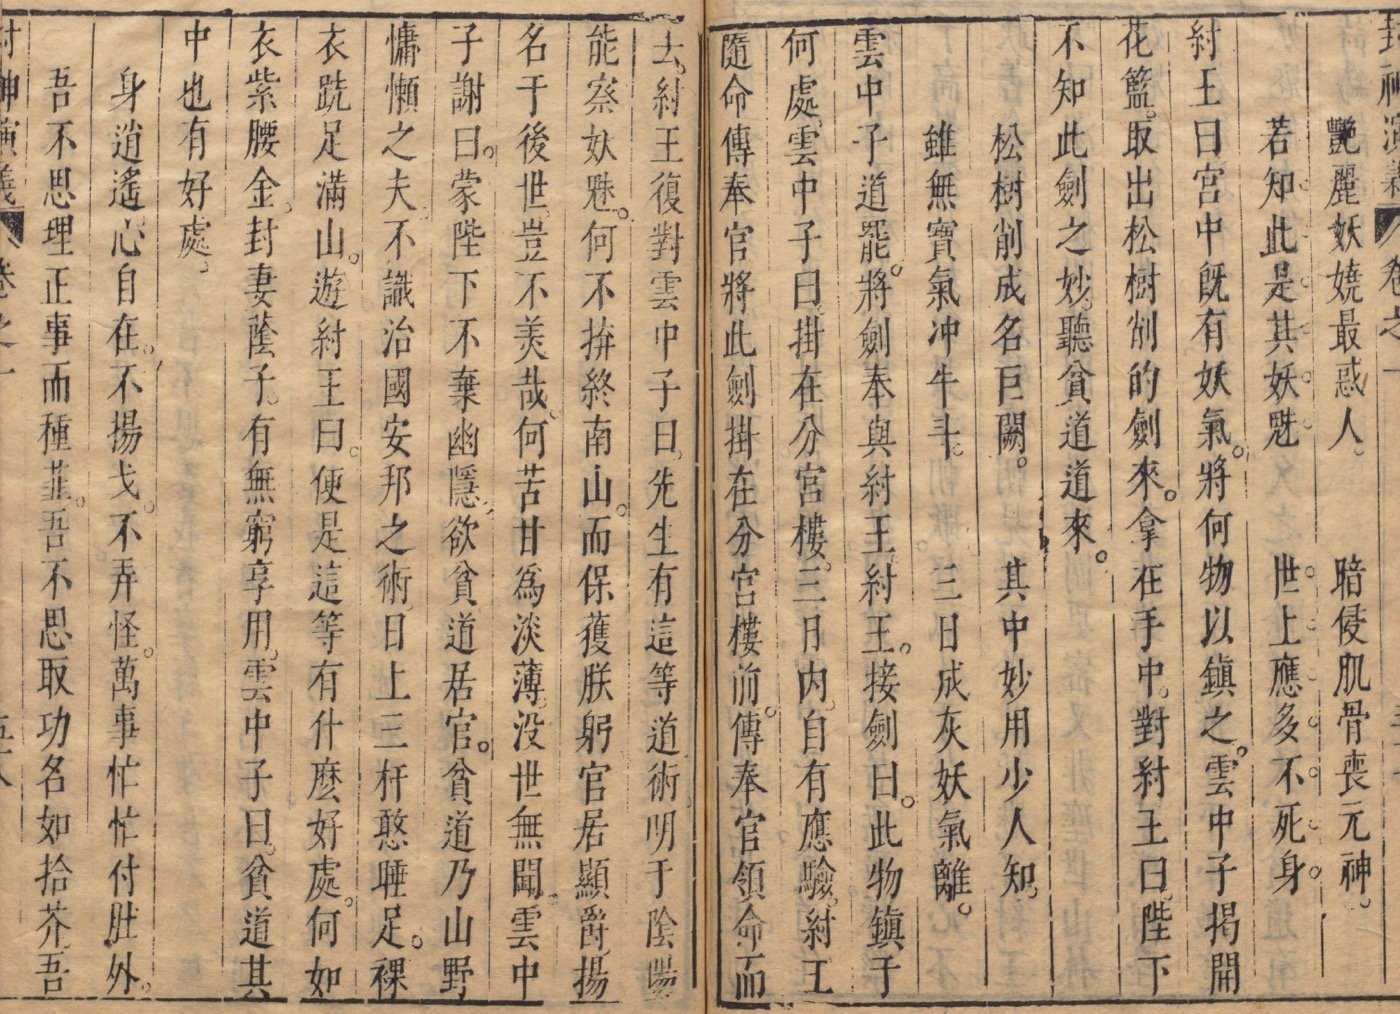 封神演義 卷之一
艷麗妖嬈最惑人。 暗侵肌骨喪元神。
若知此是其妖魅 世上應多不死身
紂王曰宮中旣有妖氣。將何物以鎮之。雲中子揭開
花籃。取出松樹削的劍來。拿在手中。對紂王曰。陛下
不知此劍之妙。聽貧道道來。
松樹削成名巨闕。 其中妙用少人知。
雖無寶氣冲牛斗。 三日成灰妖氣離。
雲中子道罷。將劍奉與紂王紂王。接劍曰。此物鎮于
何處。雲中子曰掛在分宮樓。三日內。自有應驗。紂王
隨命傳奉官將此劍掛在分宮樓前。傳奉官領命而
去。紂王復對雲中子曰。先生有這等道術。明于陰陽
能察妖魅。何不捹終南山。而保獲朕躬。官居顯爵。揚
名于後世。豈不美哉。何苦甘爲淡薄。没世無聞。雲中
子謝曰。蒙陛下不棄幽隱。欲貧道居官。貧道乃山野
慵懶之夫。不識治國安邦之術。日上三杆憨睡足。裸
衣跣足滿山。遊紂王曰。便是這等有什麽好處。何如
衣紫腰金。封妻蔭子。有無窮享用。雲中子曰。貧道其
中也有好處。
身逍遙心自在。不揚戈。不弄怪。萬事忙忙付肚外。
吾不思理正事而種韮。吾不思取功名如拾芥。吾
封神演義 卷之一